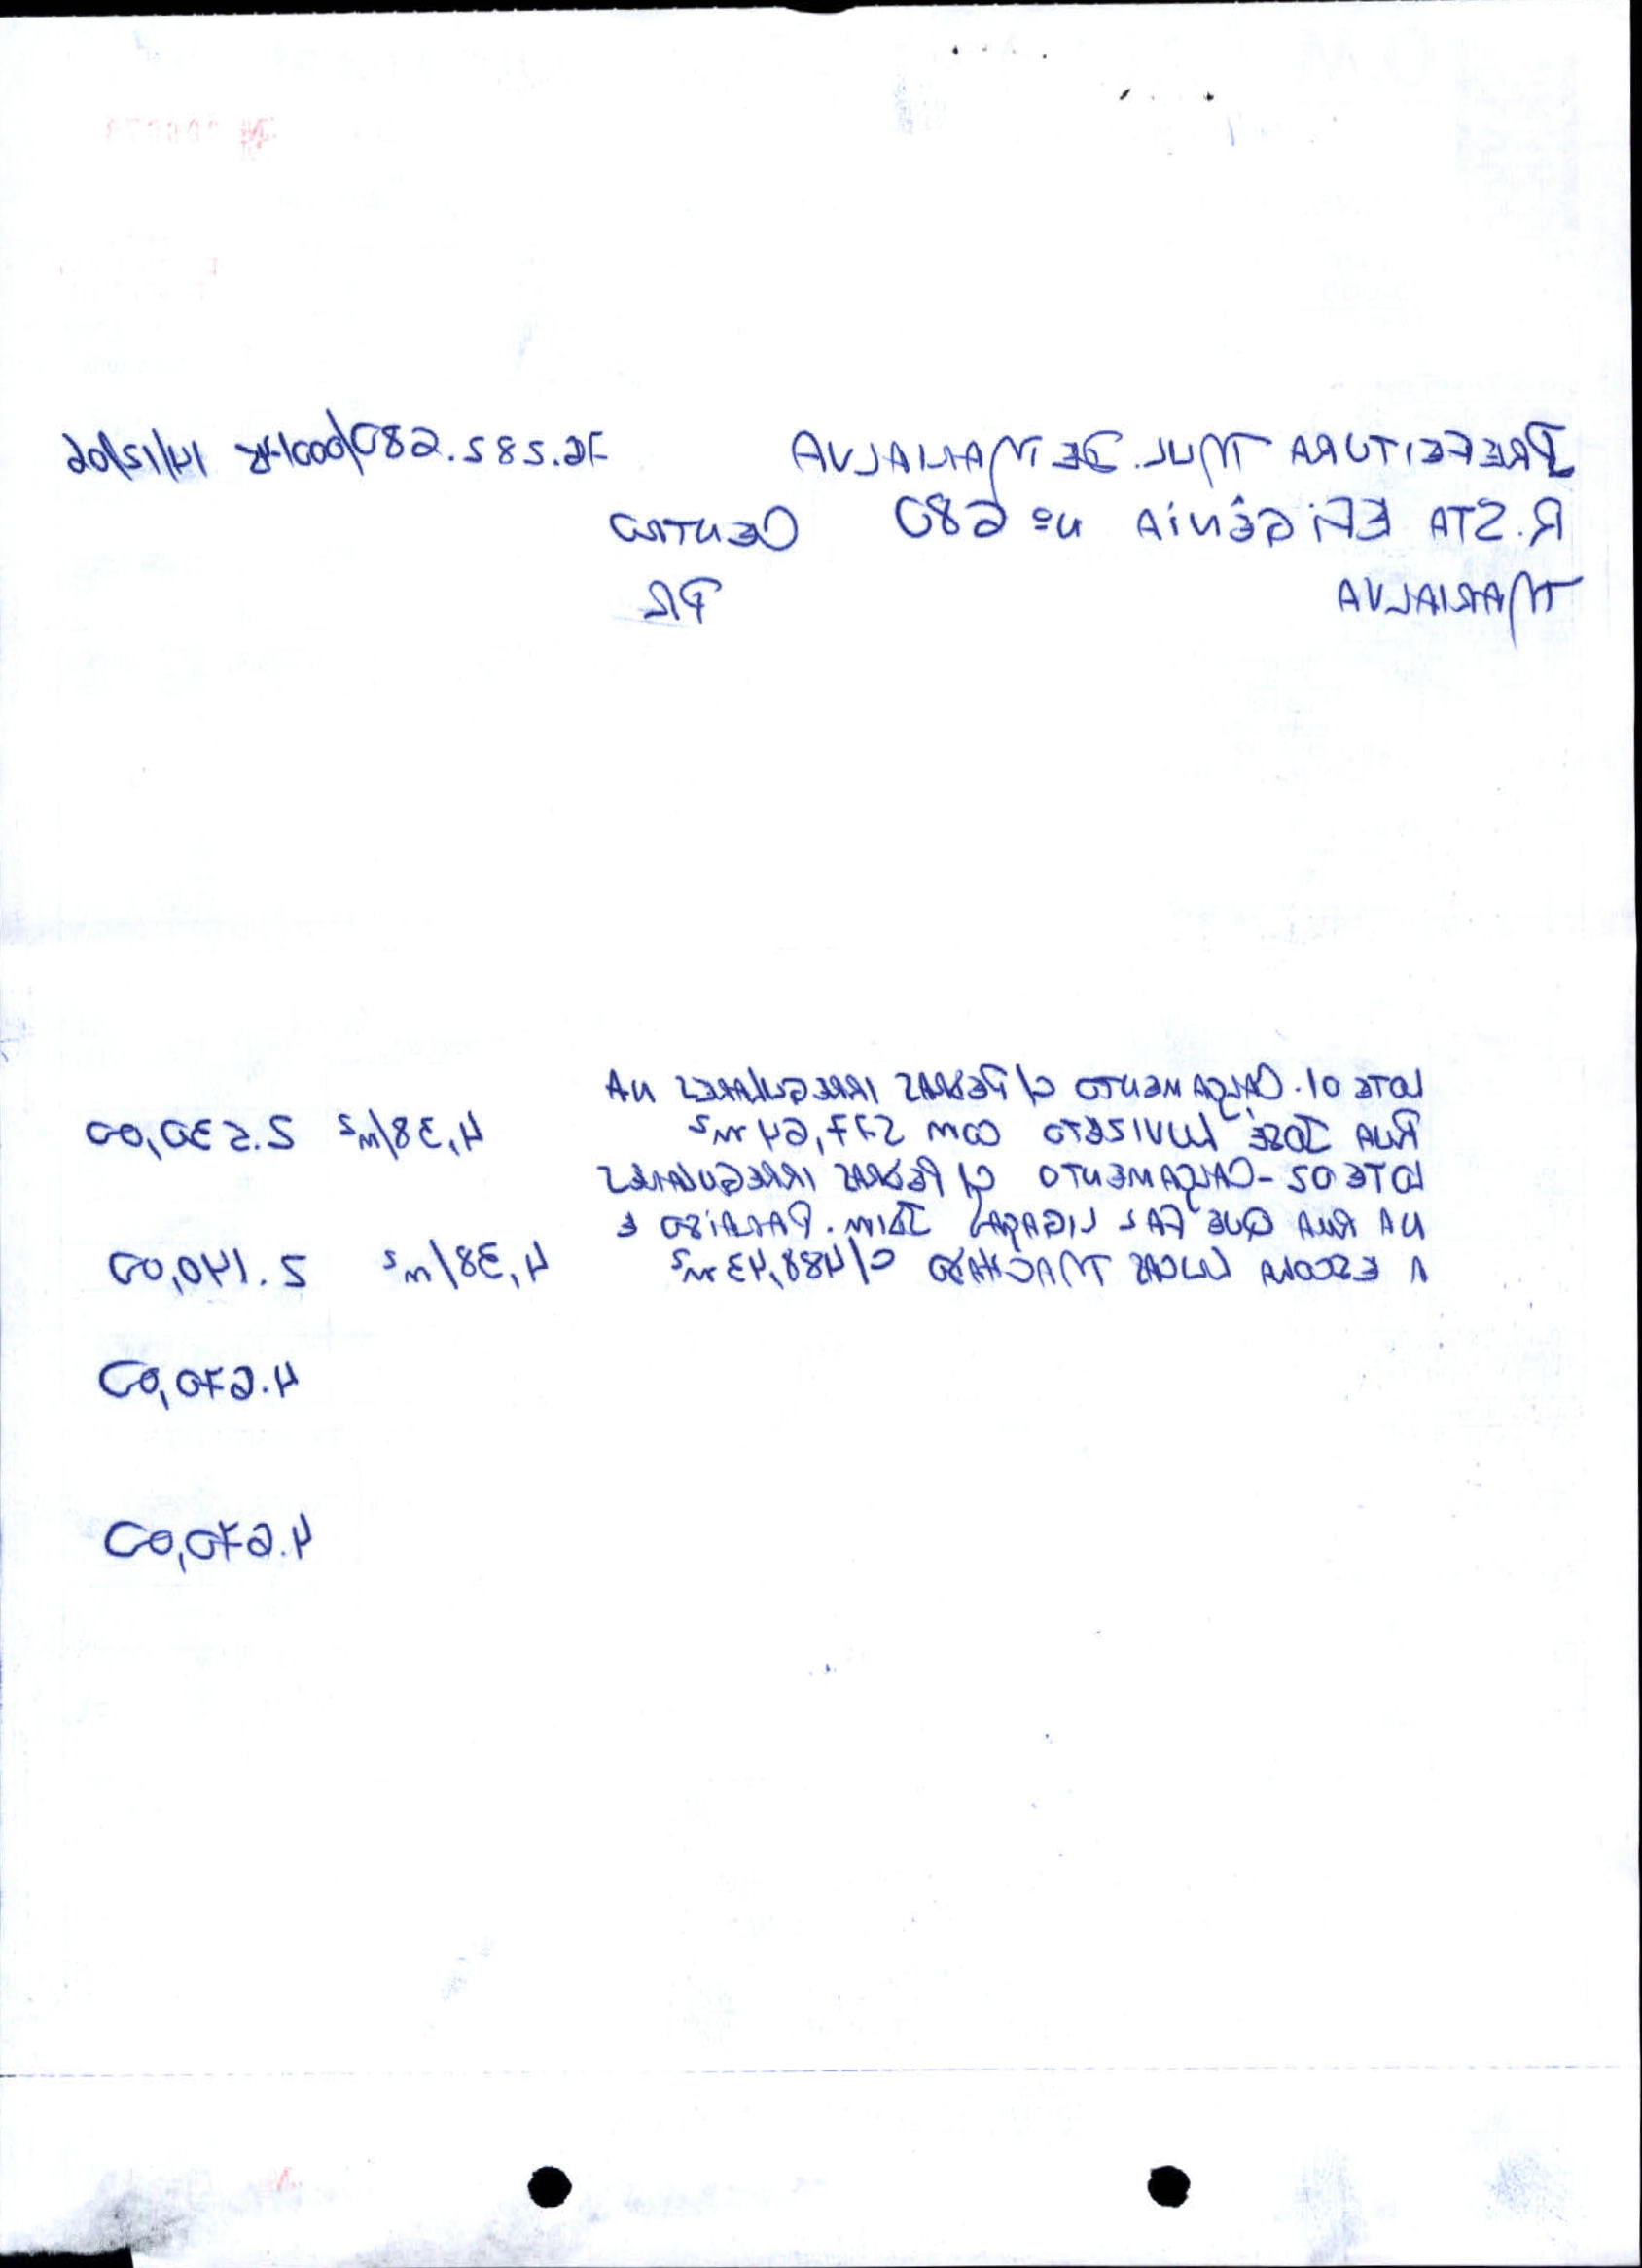 PREFEITURA MUL. DE MARIALVA 76.282.680/0001- 14/12/06
R. STA EFIGÊNIA Nº 680 CENTRO
MARIALVA PR
LOTE 01. CALÇAMENTO C/ PEDRAS IRREGULARES NA
RUA JOSÉ LUVIZETO COM 577,64 m² 4,38/m² 2.530,00
LOTE 02 - CALÇAMENTO C/ PEDRAS IRREGULARES
NA RUA QUE FAZ JDIM. PARAISO E
A ESCOLA LUCAS MACHADO C/ 488,43 m² 4,38/m² 2.140,00
4.670,00
4.670,00